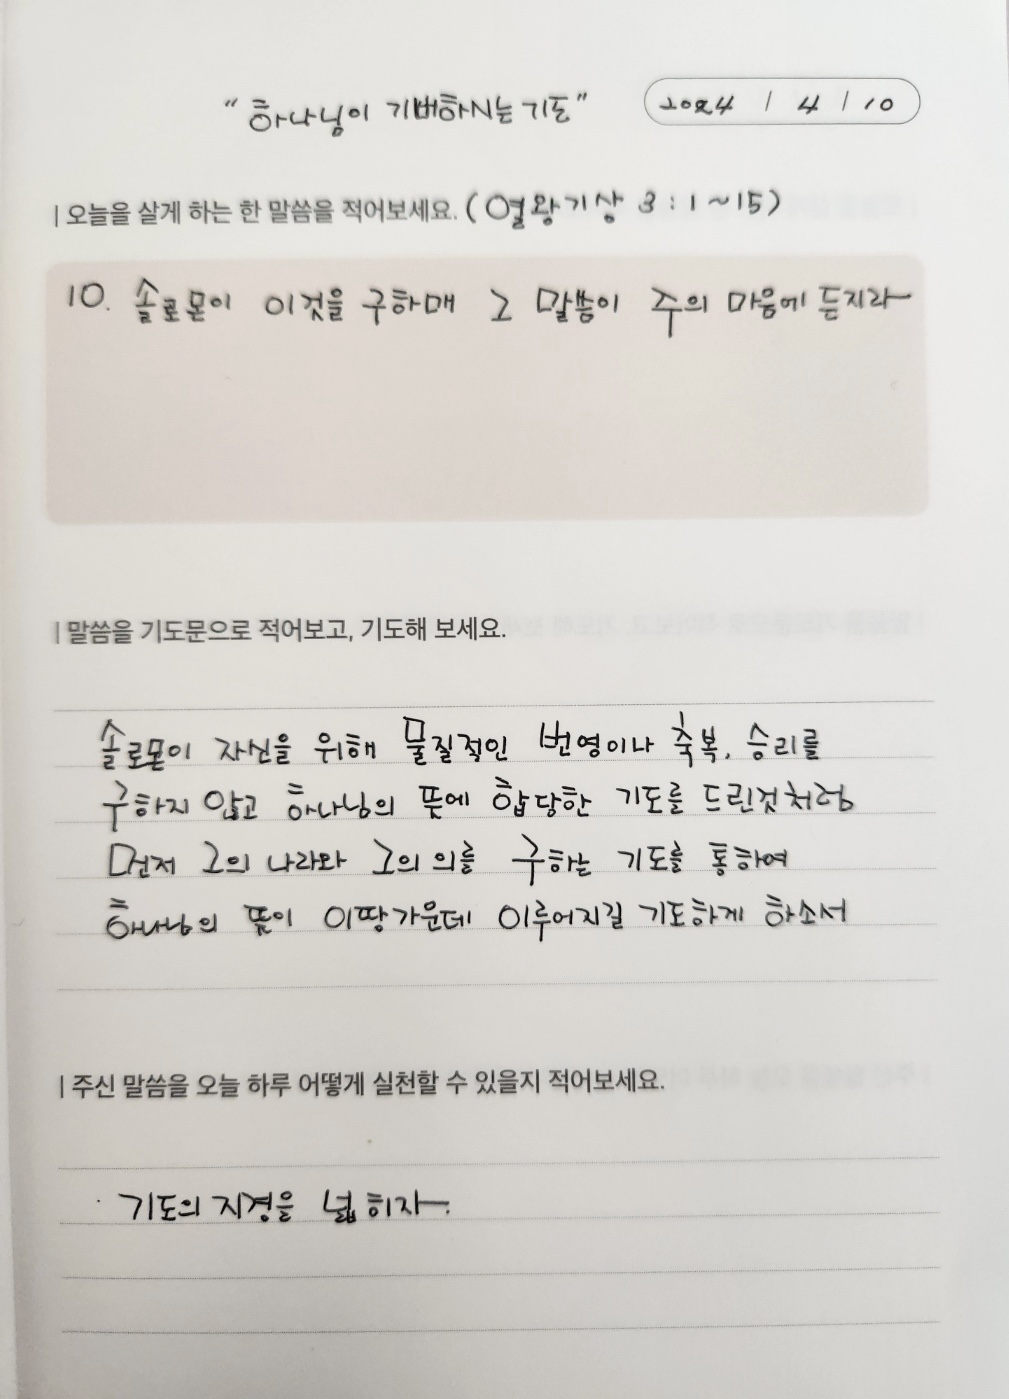 "하나님이 기뻐하시는 기도" 2024 / 4 / 10
| 오늘을 살게 하는 한 말씀을 적어보세요. (열왕기상 3:1~15)
10. 솔로몬이 이것을 구하매 그 말씀이 주의 마음에 든지라
| 말씀을 기도문으로 적어보고, 기도해 보세요.
솔로몬이 자신을 위해 물질적인 번영이나 축복, 승리를
구하지 않고 하나님의 뜻에 합당한 기도를 드린것처럼
먼저 그의 나라와 그의 의를 구하는 기도를 통하여
하나님의 뜻이 이땅가운데 이루어지길 기도하게 하소서
| 주신 말씀을 오늘 하루 어떻게 실천할 수 있을지 적어보세요.
· 기도의 지경을 넓히자.